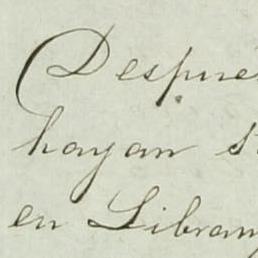 Despue
hayan s
en Libran